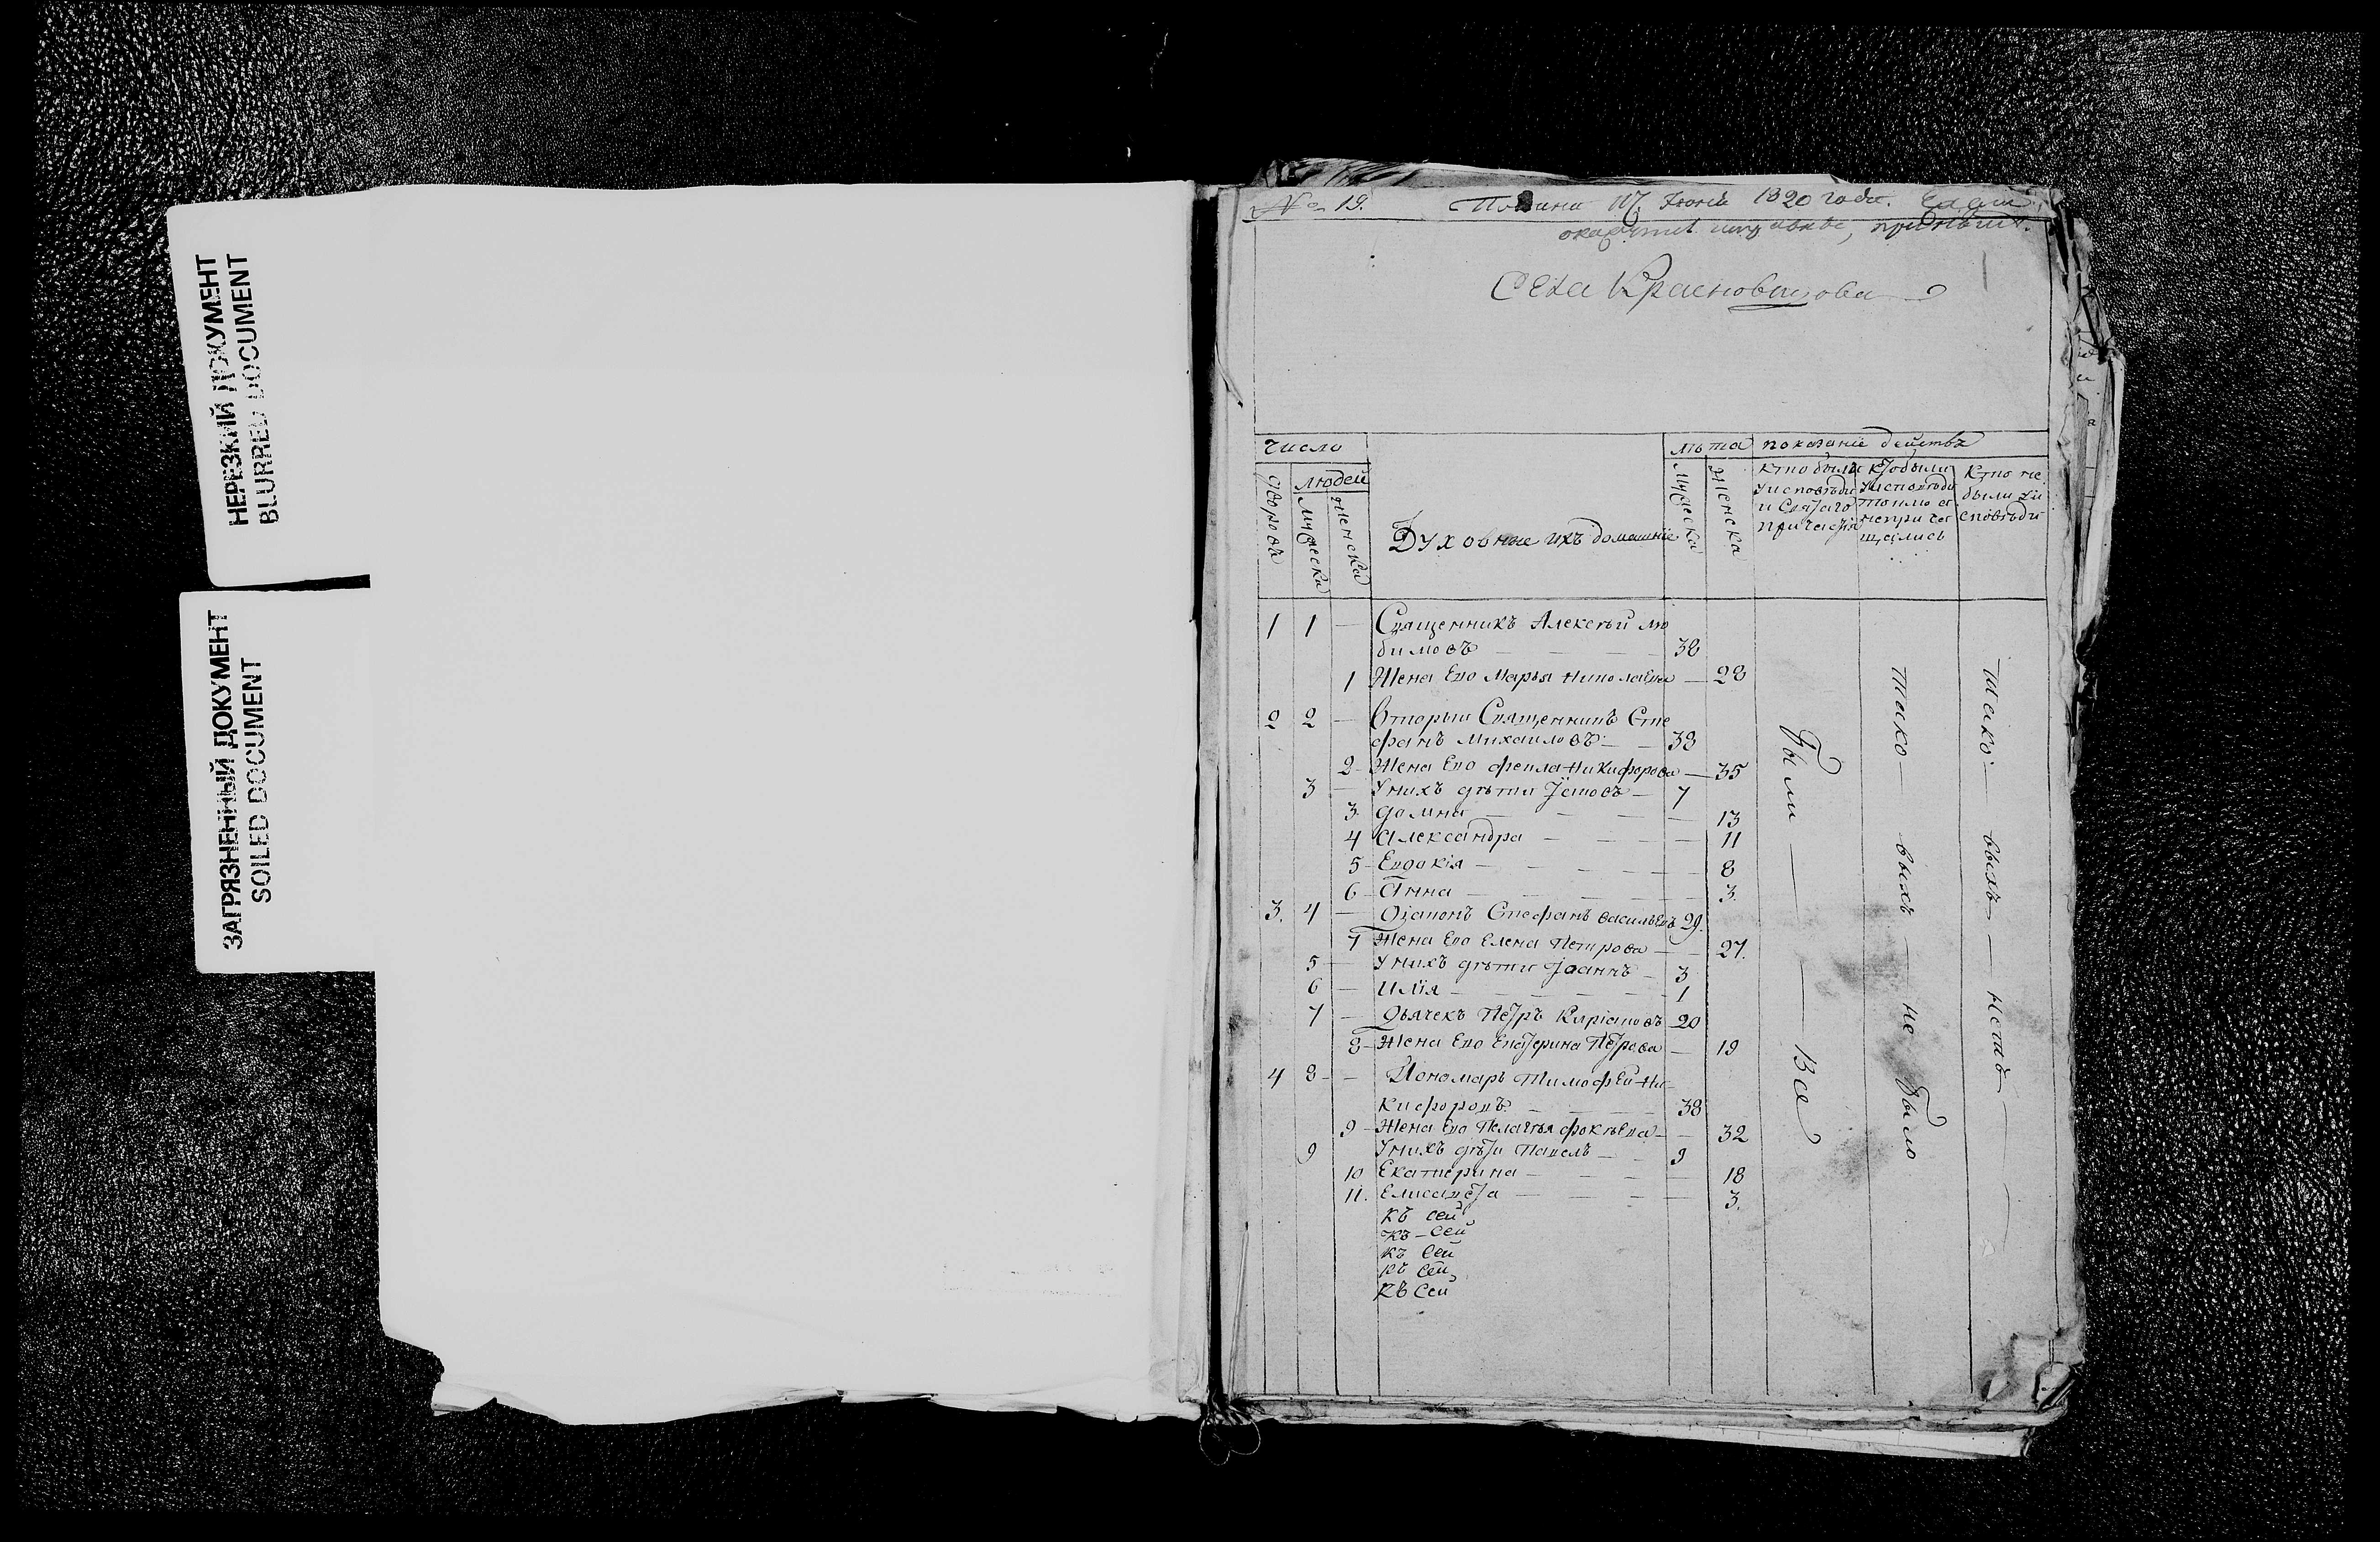 НЕРЕЗКИЙ ДОКУМЕНТ
BLURRED DOCUMENT
ЗАГРЯЗНЕННЫЙ ДОКУМЕНТ
SOILED DOCUMENT
№ 19. 1820 года.
Села
число
лѣта показаніе действъ
дворовъ
людей
мужеска
женска
Духовные ихъ домашніе
мужеска
женска
кто были
у исповѣди
и Святаго
причастія
кто были
у исповѣди
токмо а
не прича
щались
кто не
были у и
сповѣди
1 1 — Священникъ Алексѣй Лю
бимовъ — 38
1 Жена Его Марья Николаевна — 28
2 2 — Вторыи Священникъ Сте
фанъ Михаиловъ — 38
2 Жена Его Фекла Никифорова — 35
3 — У нихъ дѣти — 7
3 Домна — 13
4 Александра — 11
5 Евдокія — 8
6 Анна — 3.
3. 4 — Діаконъ Стефанъ Васильевъ 29.
7 Жена Его Елена Петрова — 27.
5 — У нихъ дѣти Іоаннъ — 3
6 — Илія — 1
7 — Дьячекъ Петръ 20
8 Жена Его Екатерина Петрова — 19
4 8 — Пономарь Тимофей Ни
кифоровъ — 38
9 Жена Его Пелагѣя Фокѣева — 32
9 У нихъ дѣти Павелъ — 9
10 Екатерина — 18
11. Елисавета — 3.
къ сей
къ — сей
къ сей
къ сей
къ сей
Были — — Все
тако — выхъ — не было
тако — выхъ — нетъ